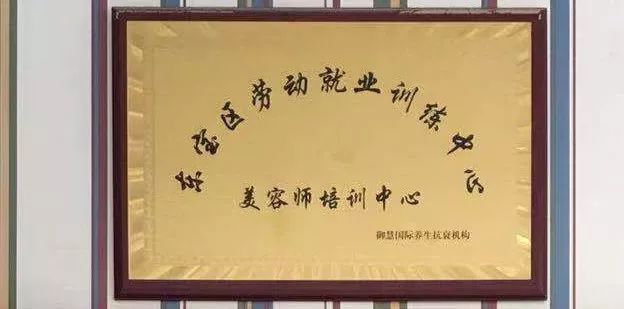 东陵区劳动就业训练中心
美容师培训中心
御慧国际养生抗衰机构